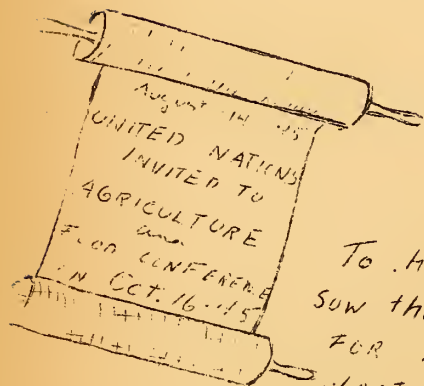 August 14 '45
UNITED NATIONS
INVITED TO
AGRICULTURE
and
FOOD CONFERENCE
IN Oct. 16-45
To
sow th
FOR